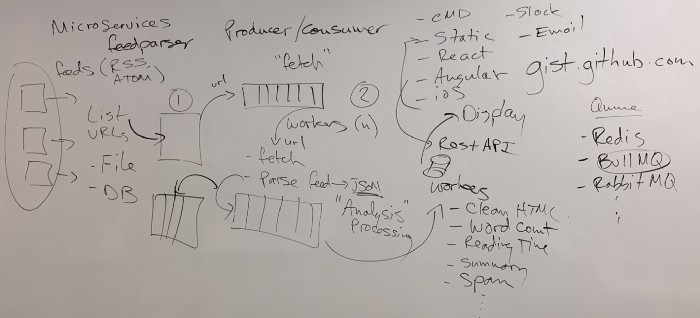 Microservices
feedparser
feeds (RSS,
ATOM)
List
URLs
- File
- DB
1
Producer/consumer
url
"fetch"
2
workers (n)
url
- fetch
- Parse feed → JSON
"Analysis"
Processing
- CMD
- Static
- React
- Angular
- iOS
- Slack
- Email
gist.github.com
Display
Rest API
Workers
- Clean HTML
- Word Count
- Reading Time
- Summary
- Spam
Queue
- Redis
- BullMQ
- RabbitMQ